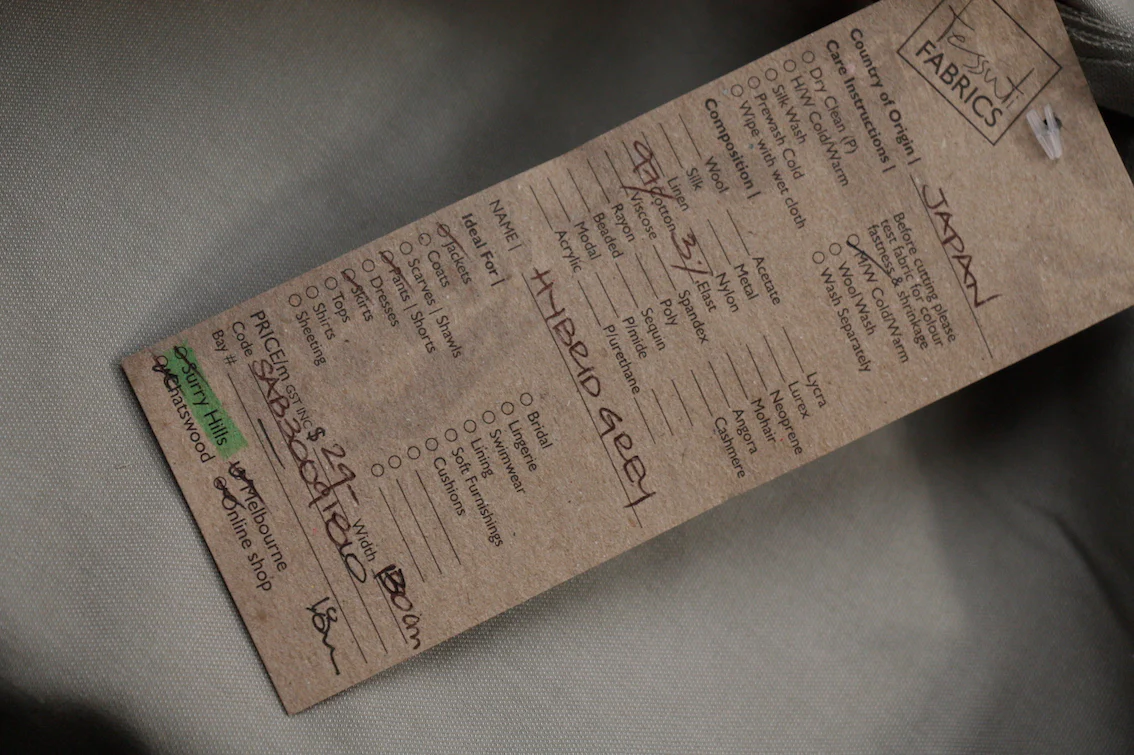 tessuti
FABRICS
Country of Origin | JAPAN
Care Instructions |
Before cutting please
test fabric for colour
fastness & shrinkage
Dry Clean (P)
H/W Cold/Warm
Silk Wash
Prewash Cold
Wipe with wet cloth
M/W Cold/Warm
Wool Wash
Wash Separately
Composition |
Wool
Silk
Linen
97% Cotton
Viscose
Rayon
Beaded
Modal
Acrylic
Acetate
Metal
Nylon
3% Elast
Spandex
Poly
Sequin
P/mide
P/urethane
Lycra
Lurex
Neoprene
Mohair
Angora
Cashmere
NAME | HYBRID GREY
Ideal For |
Jackets
Coats
Scarves | Shawls
Pants | Shorts
Dresses
Skirts
Tops
Shirts
Sheeting
Bridal
Lingerie
Swimwear
Lining
Soft Furnishings
Cushions
PRICE/m GST INC $ 29- Width 130cm
Code
Bay #
1.8m
Surry Hills Melbourne
Chatswood Online shop